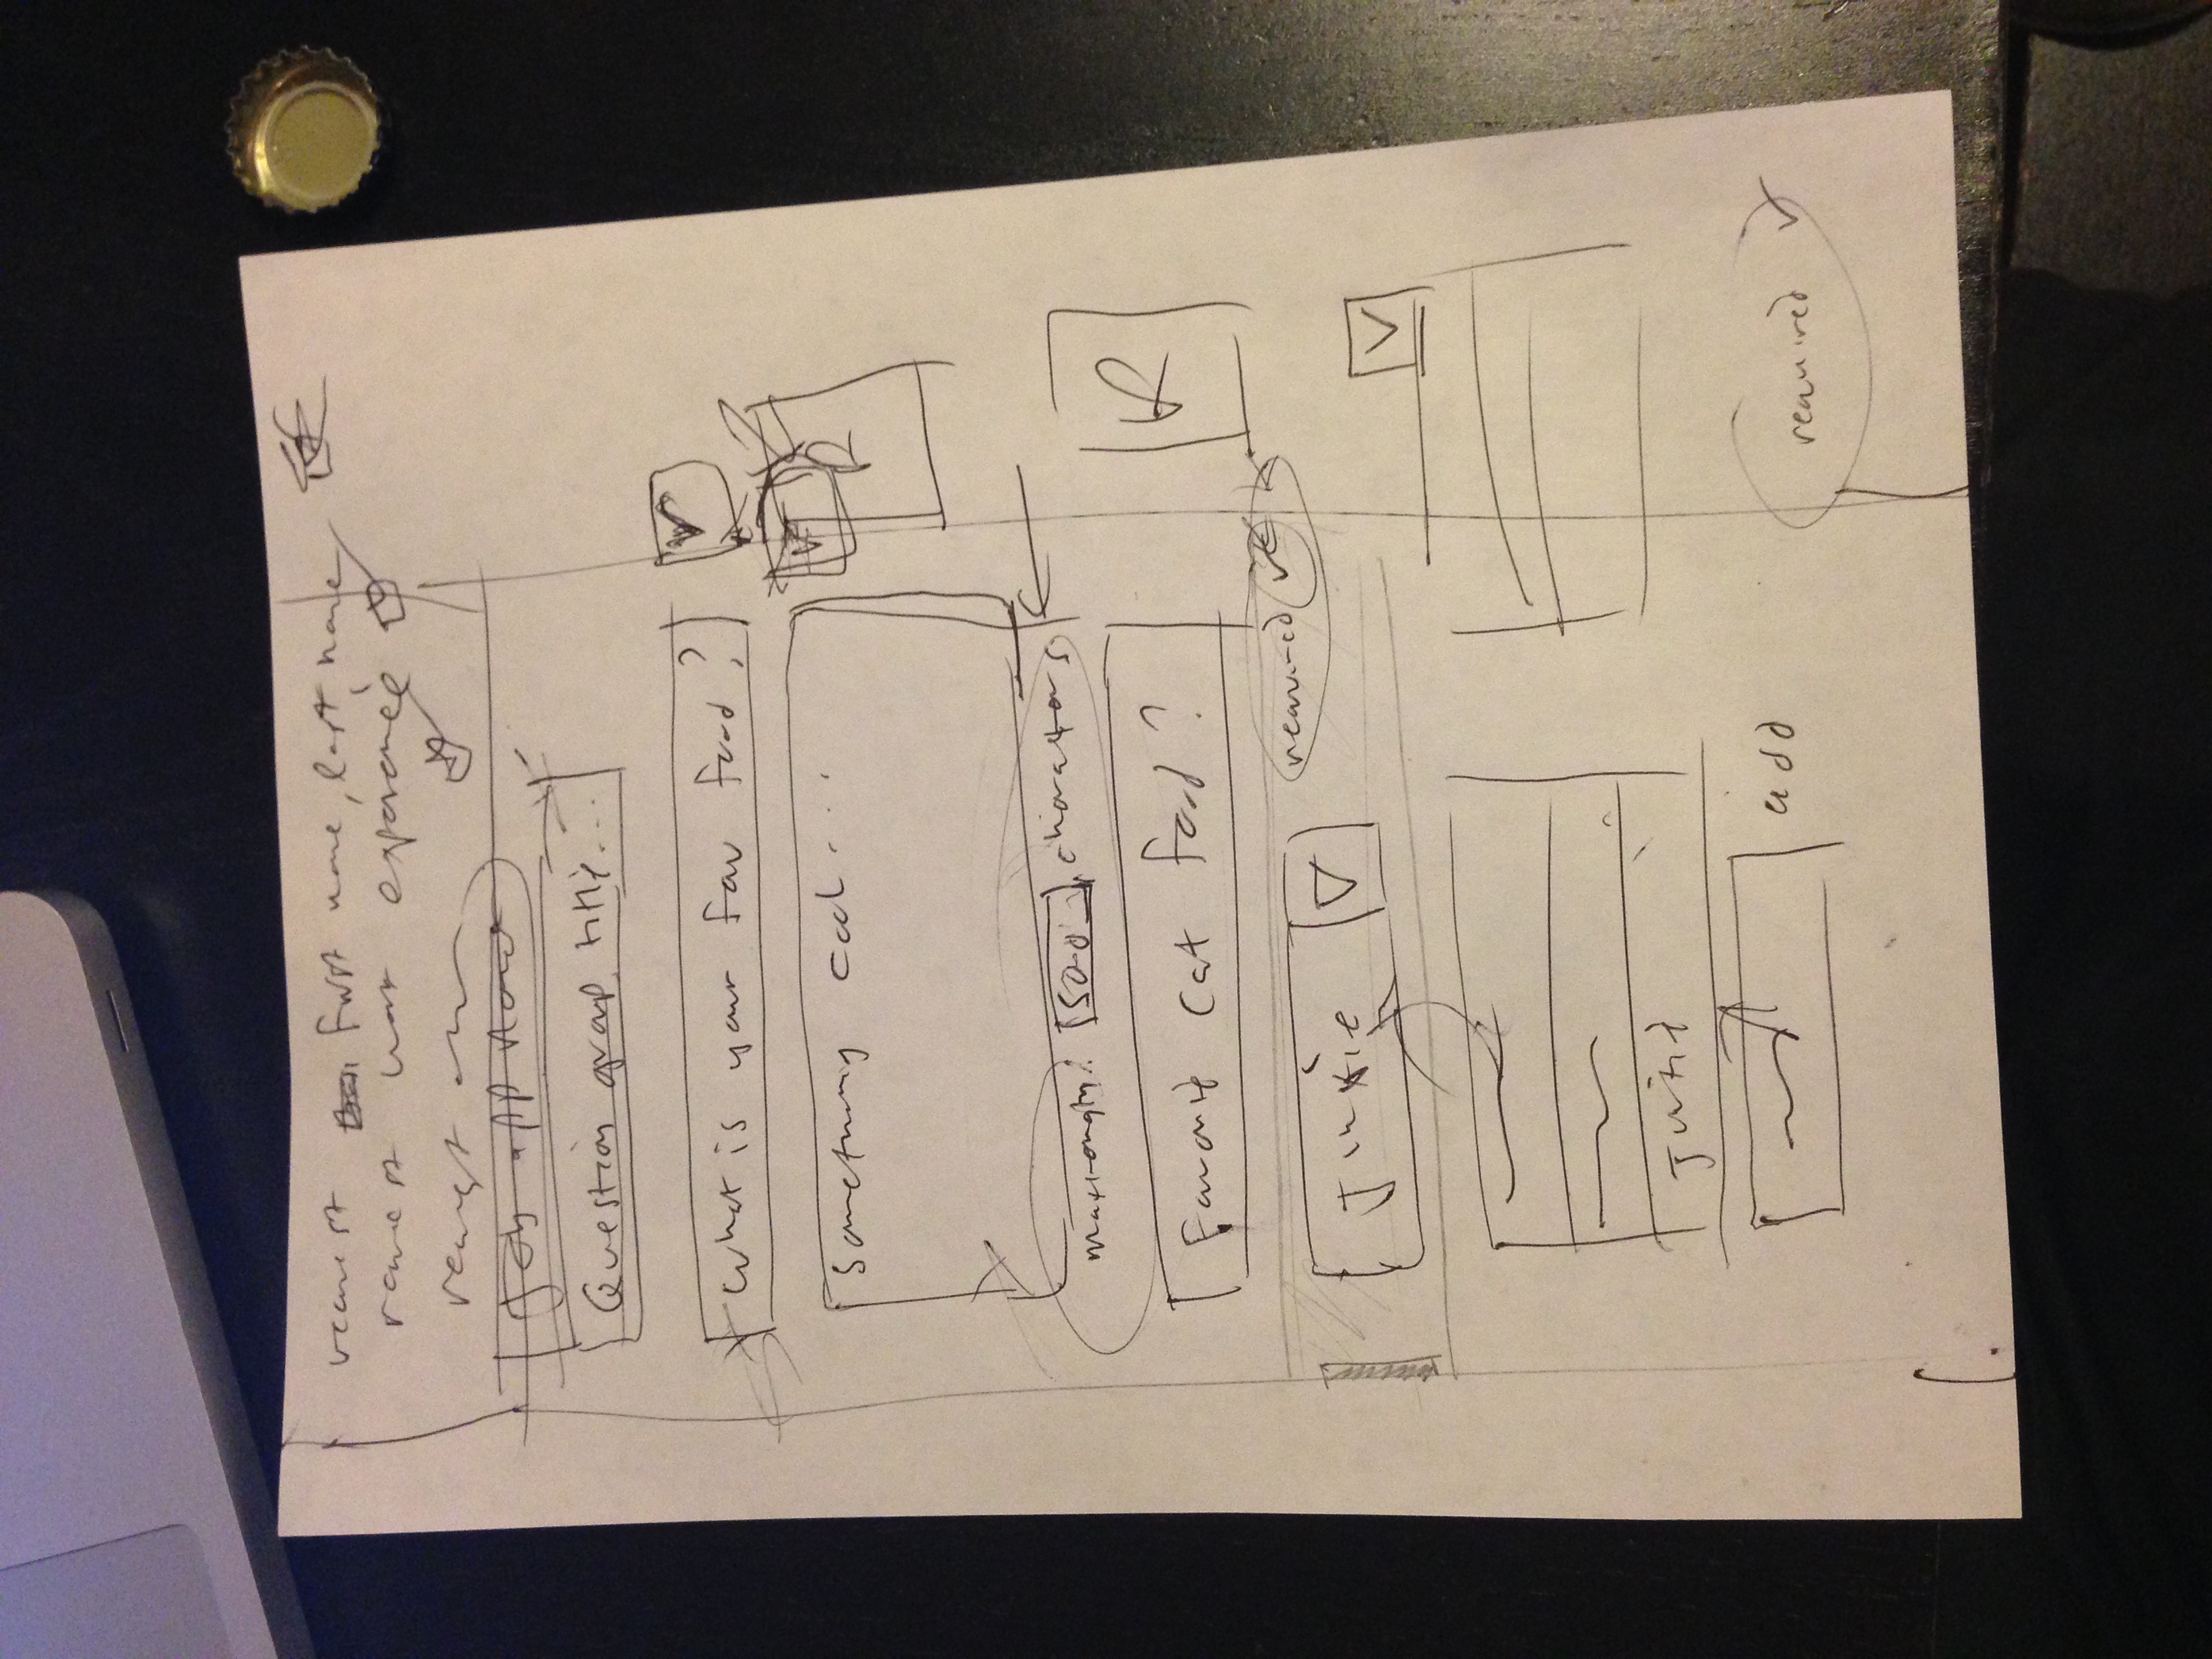 request first name, last name
request work experience
request
Question group title...
What is your fav food?
Something cool...
max length: 500 characters
Favorite cat food?
required
Junkie
add
required